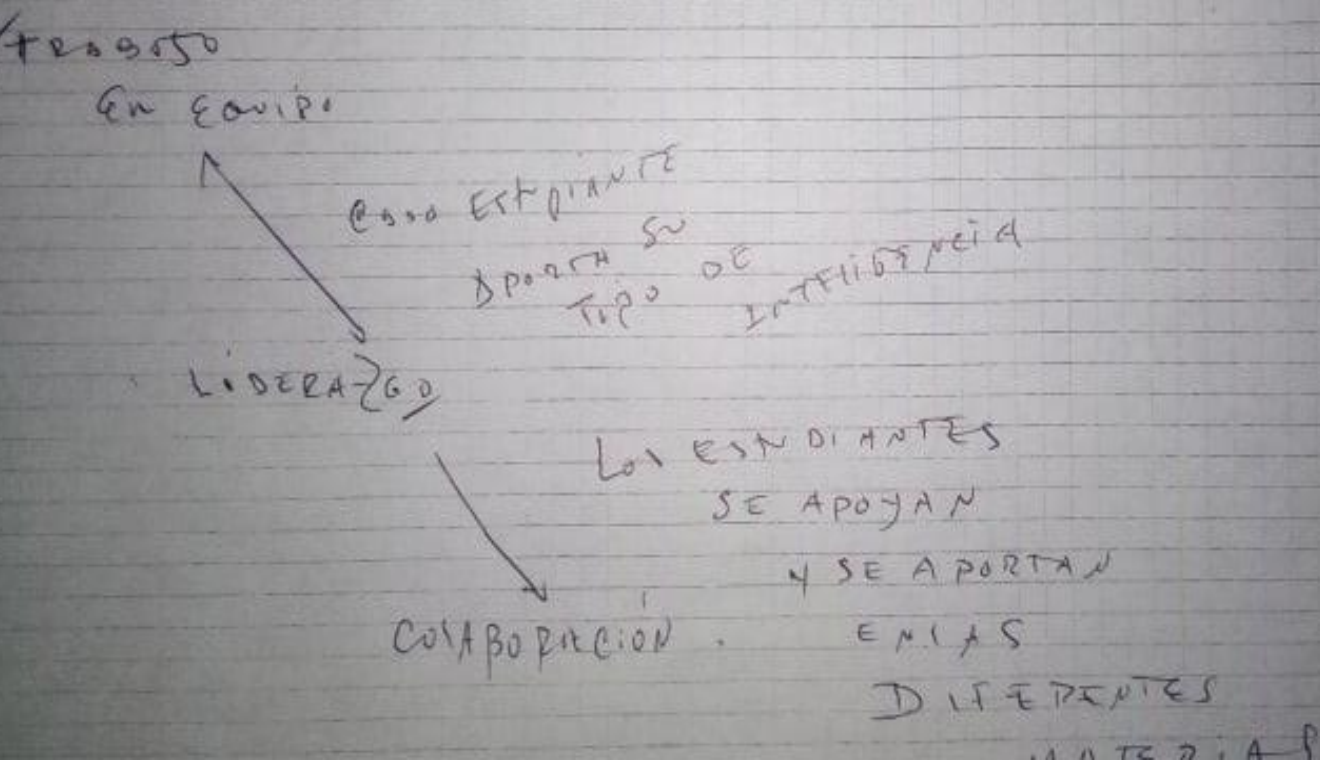 TRABAJO
En Equipo
Cada Estudiante
Aporta su
Tipo de
Inteligencia
LiDERAZGO
Los ESTUDIANTES
SE APOYAN
Y SE APORTAN
EN LAS
DIFERENTES
MATERIAS
COLABORACIÓN.